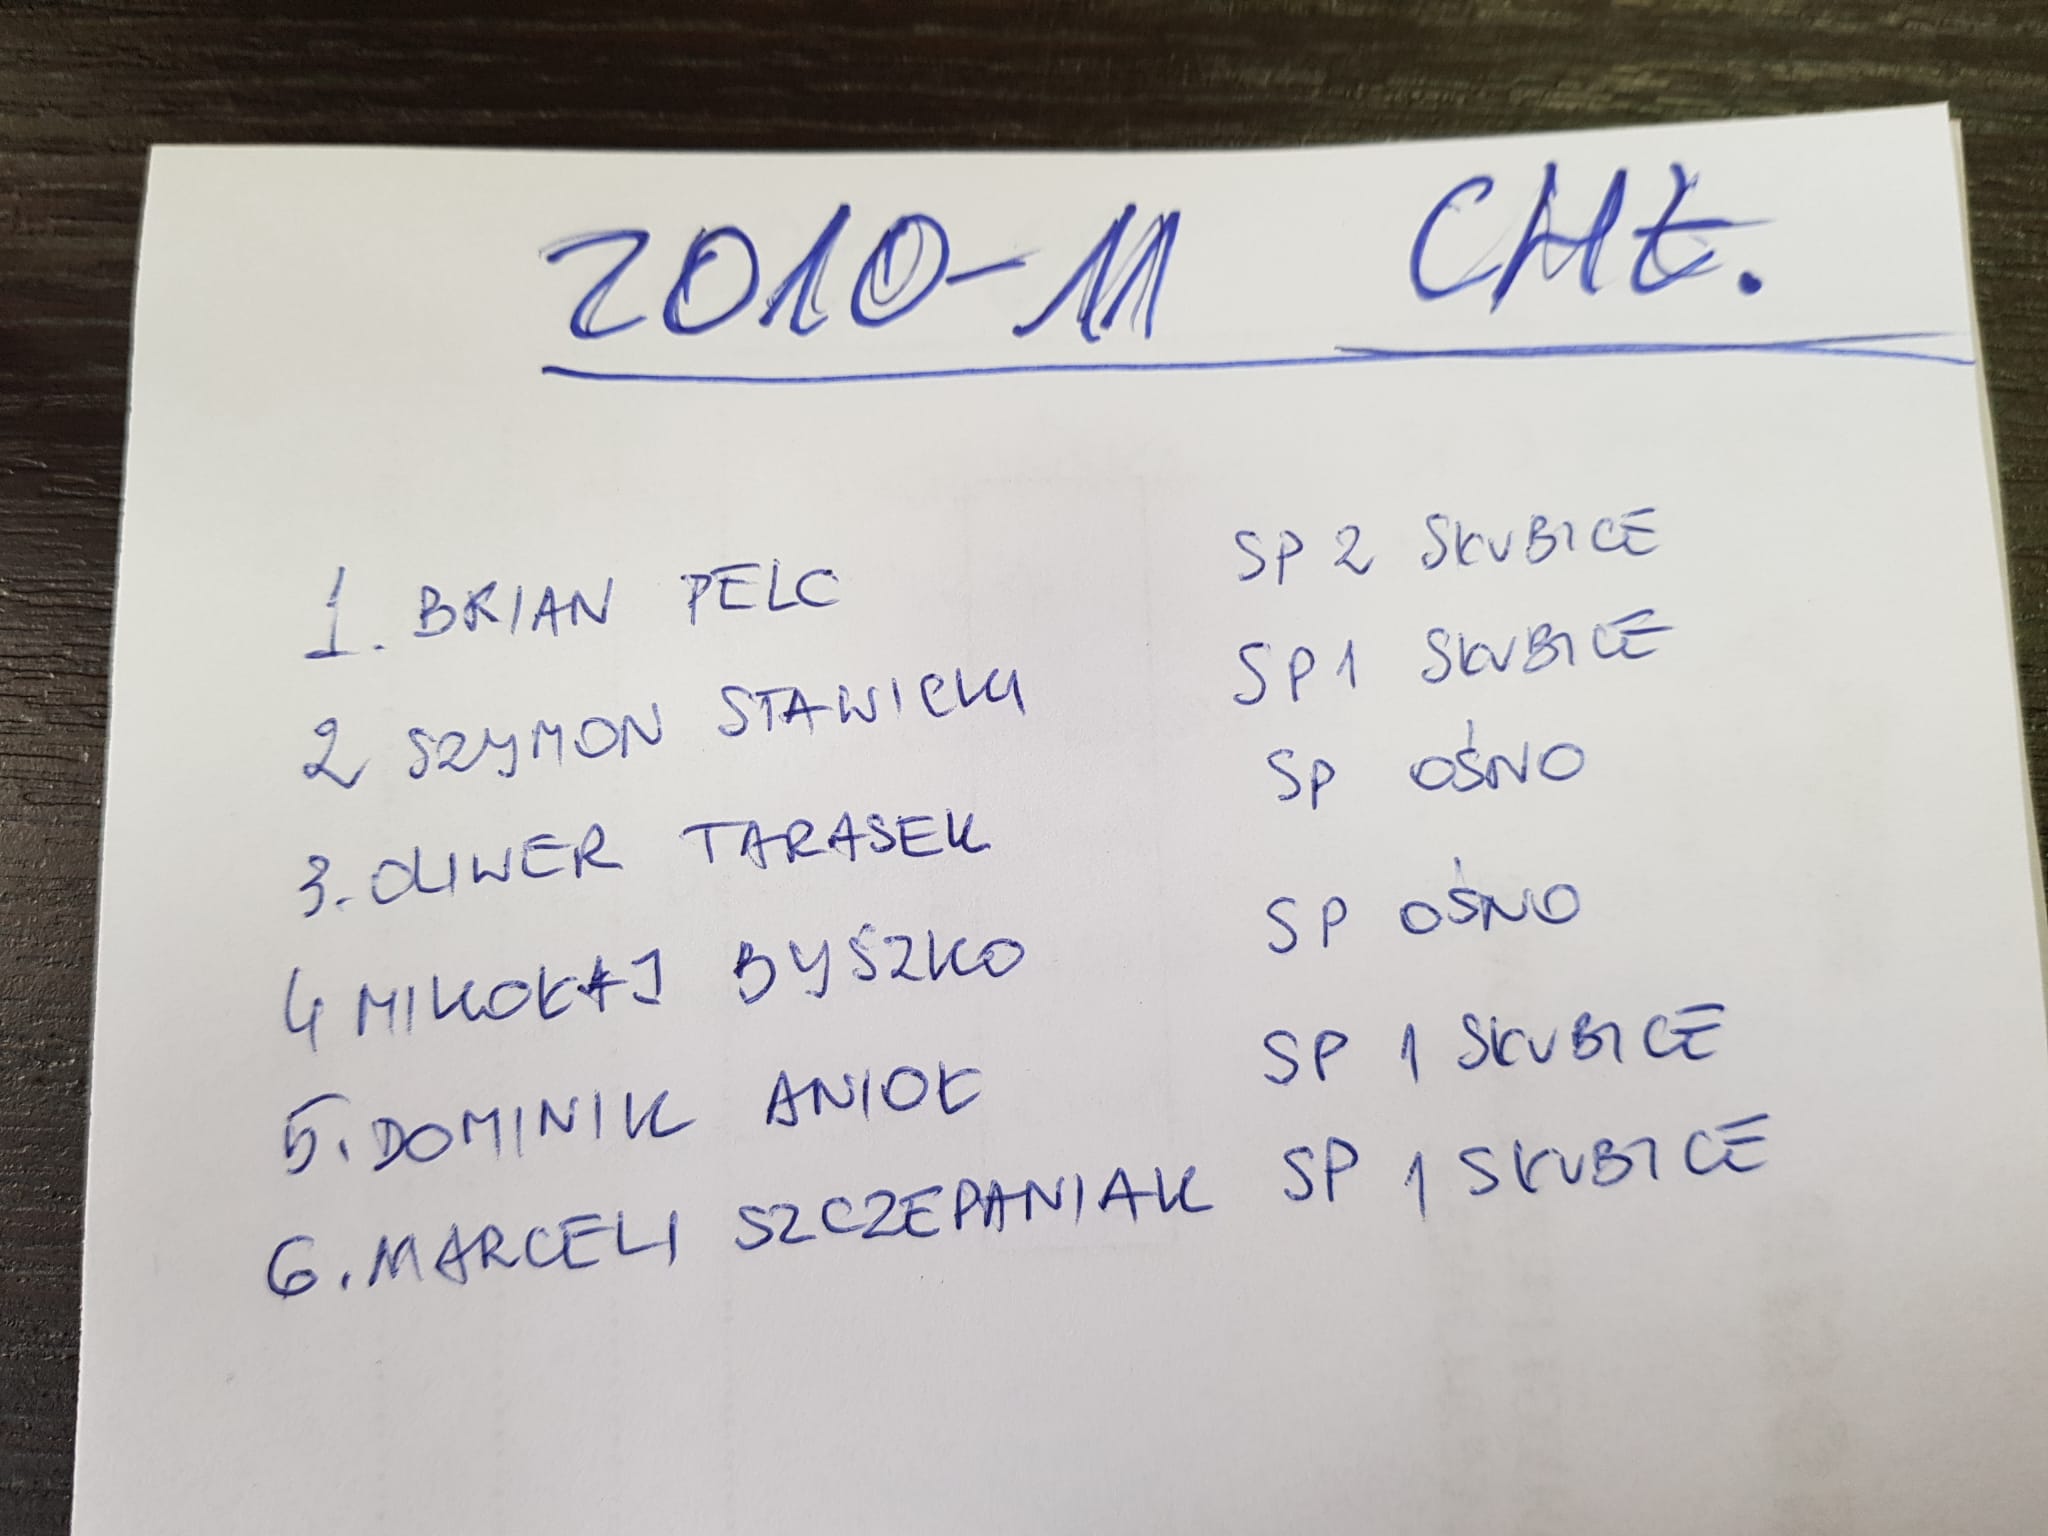 2010-11 CHŁ.
1. BRIAN PELC SP 2 SŁUBICE
2 SZYMON STAWICKI SP 1 SŁUBICE
3. OLIWER TARASEK SP OŚNO
4 MIKOŁAJ BYSZKO SP OŚNO
5. DOMINIK ANIOŁ SP 1 SŁUBICE
6. MARCELI SZCZEPANIAK SP 1 SŁUBICE